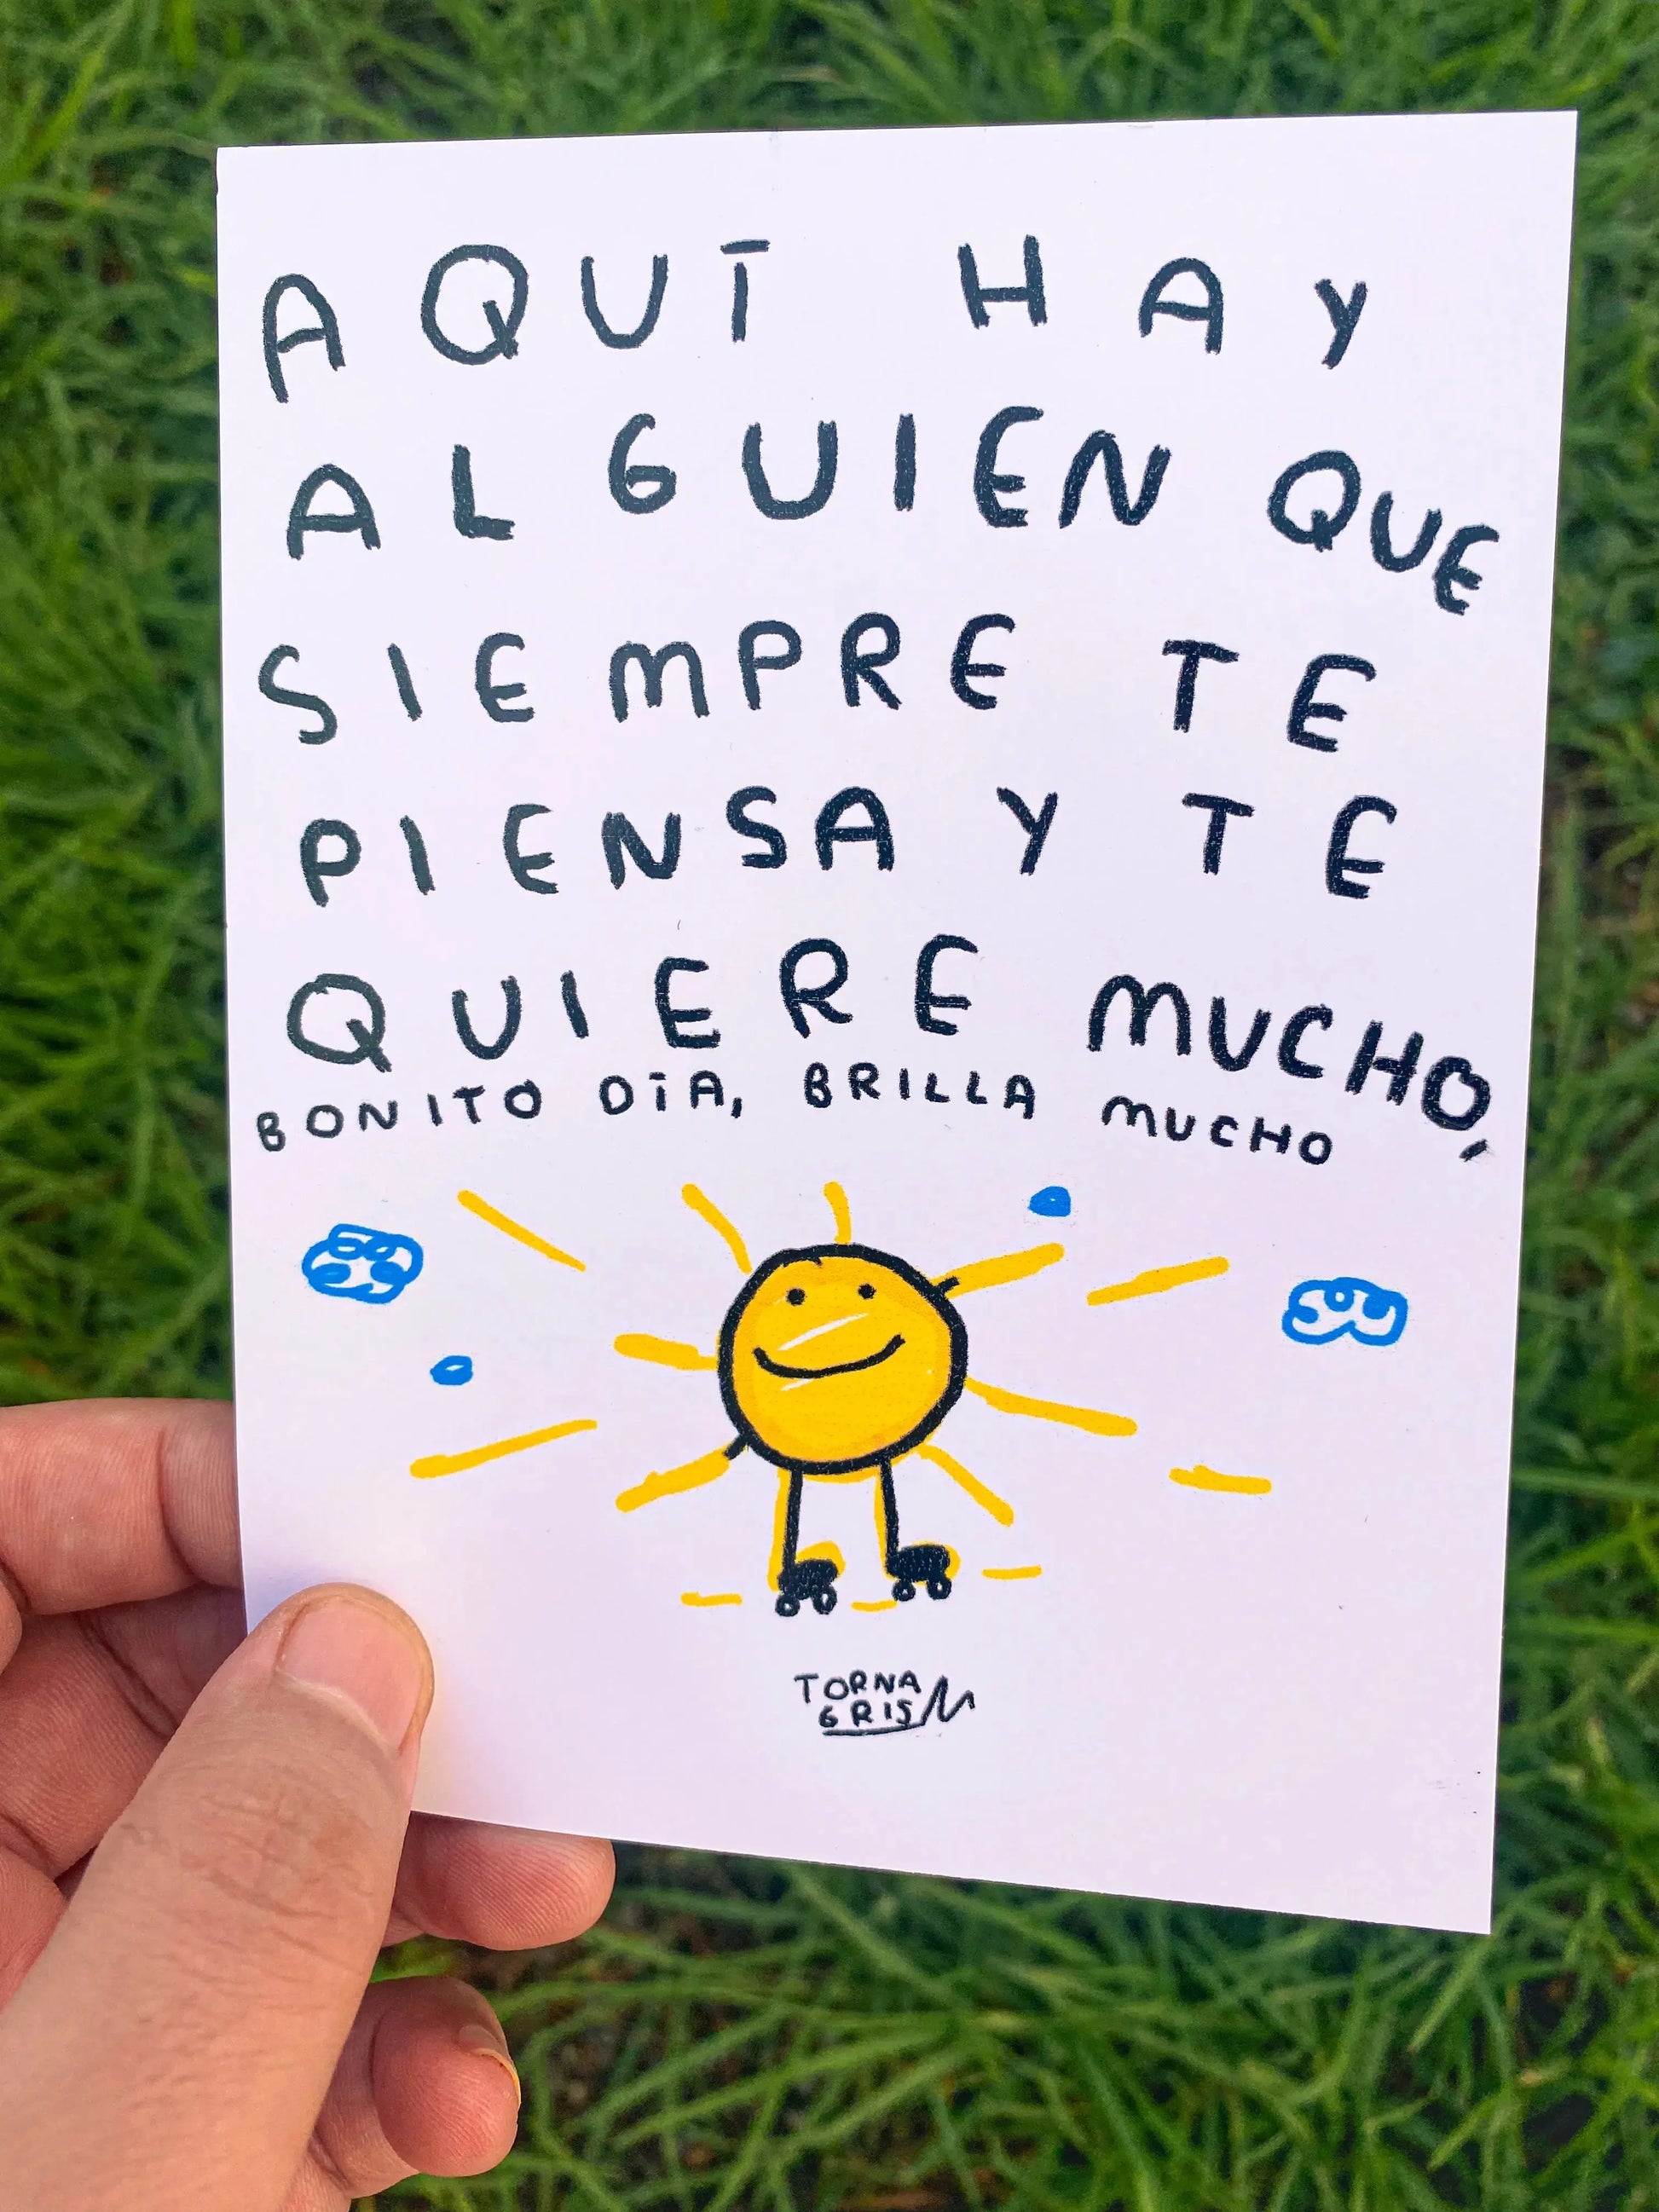 AQUĪ HAY
ALGUIEN QUE
SIEMPRE TE
PIENSA Y TE
QUIERE MUCHO,
BONITO DÍA, BRILLA MUCHO
TORNA
GRIS